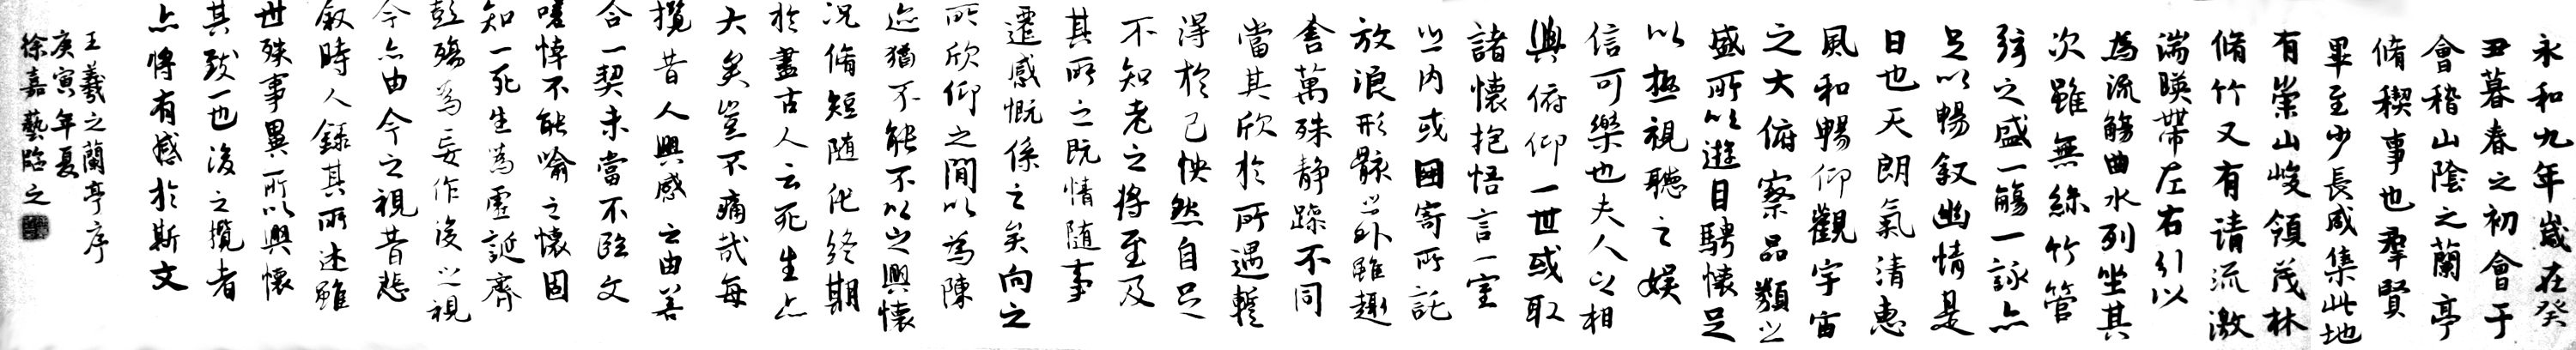 永和九年歲在癸
丑暮春之初會于
會稽山陰之蘭亭
脩稧事也羣賢
畢至少長咸集此地
有崇山峻領茂林
脩竹又有清流激
湍暎帶左右引以
為流觴曲水列坐其
次雖無絲竹管
弦之盛一觴一詠亦
足以暢叙幽情是
日也天朗氣清惠
風和暢仰觀宇宙
之大俯察品類之
盛所以遊目騁懷足
以極視聽之娛
信可樂也夫人之相
與俯仰一世或取
諸懷抱悟言一室
之内或因寄所託
放浪形骸之外雖趣
舍萬殊静躁不同
當其欣於所遇蹔
得於己怏然自足
不知老之将至及
其所之既情随事
遷感慨係之矣向之
所欣仰之間以為陳
迹猶不能不以之興懷
况脩短随化終期
於盡古人云死生亦
大矣豈不痛哉每
攬昔人興感之由若
合一契未嘗不臨文
嗟悼不能喻之懷固
知一死生為虚誕齊
彭殤為妄作後之視
今亦由今之視昔悲
叙時人録其所述雖
世殊事異所以興懷
其致一也後之攬者
亦将有感於斯文
王羲之蘭亭序
庚寅年夏
徐嘉藝臨之